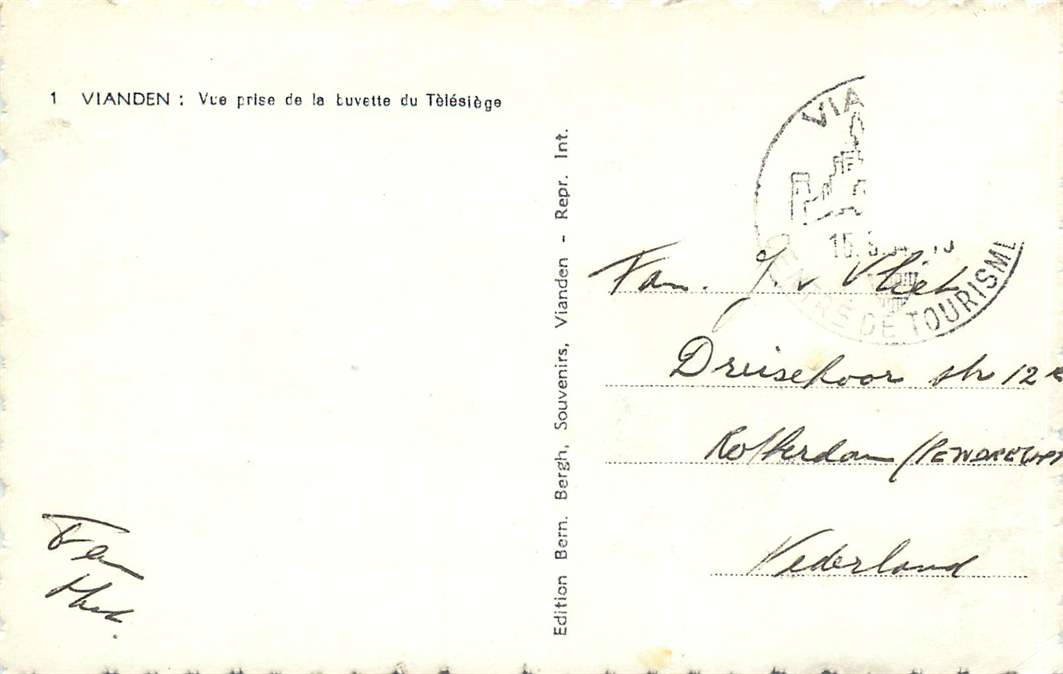 1 VIANDEN : Vue prise de la buvette du Tèlésiège
Edition Bern. Bergh, Souvenirs, Vianden - Repr. Int.
VIA
CENTRE DE TOURISME
Fam. J. v Vliet
str 12
Rotterdam (PENDRECHT
Nederland
Fam